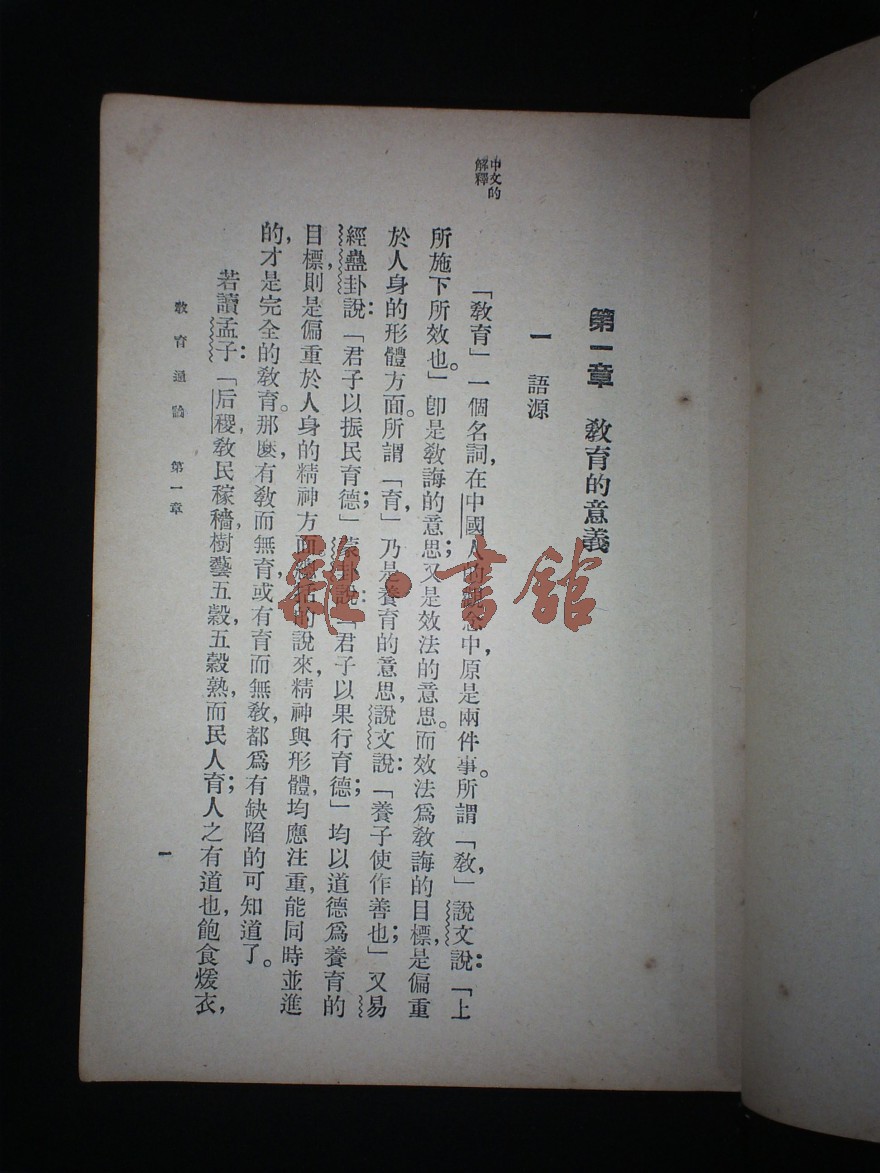 第一章　教育的意義
一　語源
中文的
解釋
「教育」一個名詞，在中國人的觀念中，原是兩件事。所謂「教」，說文說：「上
所施下所效也。」卽是教誨的意思；又是效法的意思。而效法爲教誨的目標，是偏重
於人身的形體方面。所謂「育」，乃是養育的意思，說文說：「養子使作善也」；又易
經蠱卦說：「君子以振民育德」；蒙卦說：「君子以果行育德」；均以道德爲養育的
目標，則是偏重於人身的精神方面。總括的說來，精神與形體，均應注重，能同時並進
的，才是完全的教育。那麼有教而無育，或有育而無教，都爲有缺陷的可知道了。
若讀孟子：「后稷，教民稼穡，樹藝五穀，五穀熟，而民人育；人之有道也，飽食煖衣，
教育通論　第一章
一
雜·書館